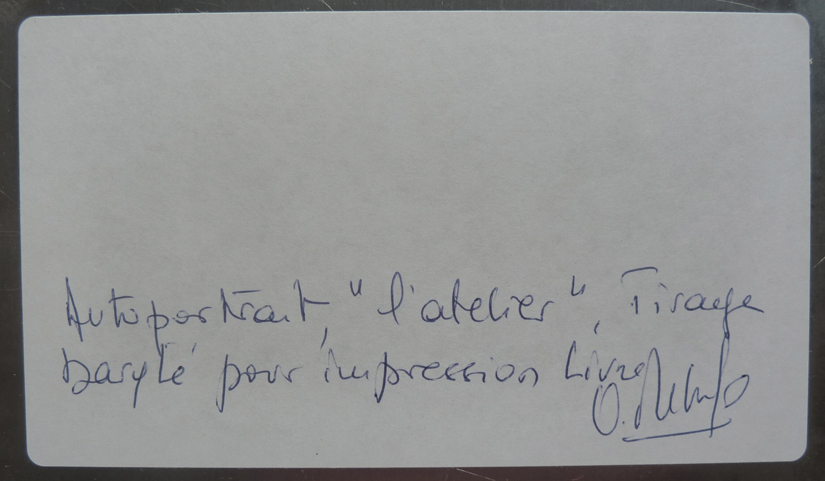 Autoportrait, "l'atelier", Tirage
baryté pour impression Livre